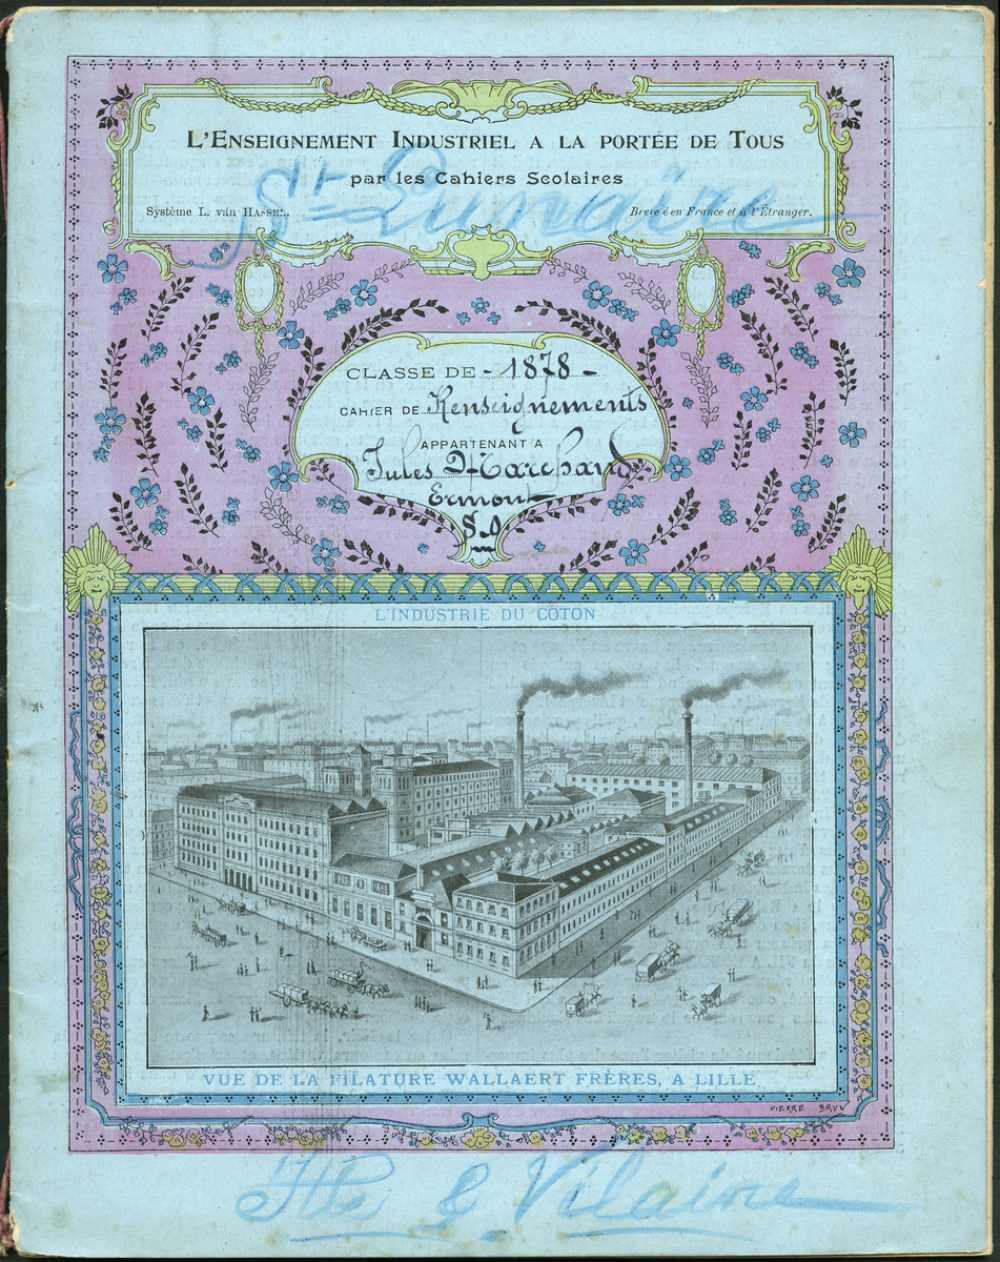 L'ENSEIGNEMENT INDUSTRIEL A LA PORTÉE DE TOUS
par les Cahiers Scolaires
St Lunaire
Système L. van HASSEL.
Breveté en France et à l'Étranger.
CLASSE DE - 1878 -
CAHIER DE Renseignements
APPARTENANT A
Jules Marchand
Ermont
S.O
L'INDUSTRIE DU COTON
VUE DE LA FILATURE WALLAERT FRÈRES, A LILLE
PIERRE BRUN
Ille & Vilaine